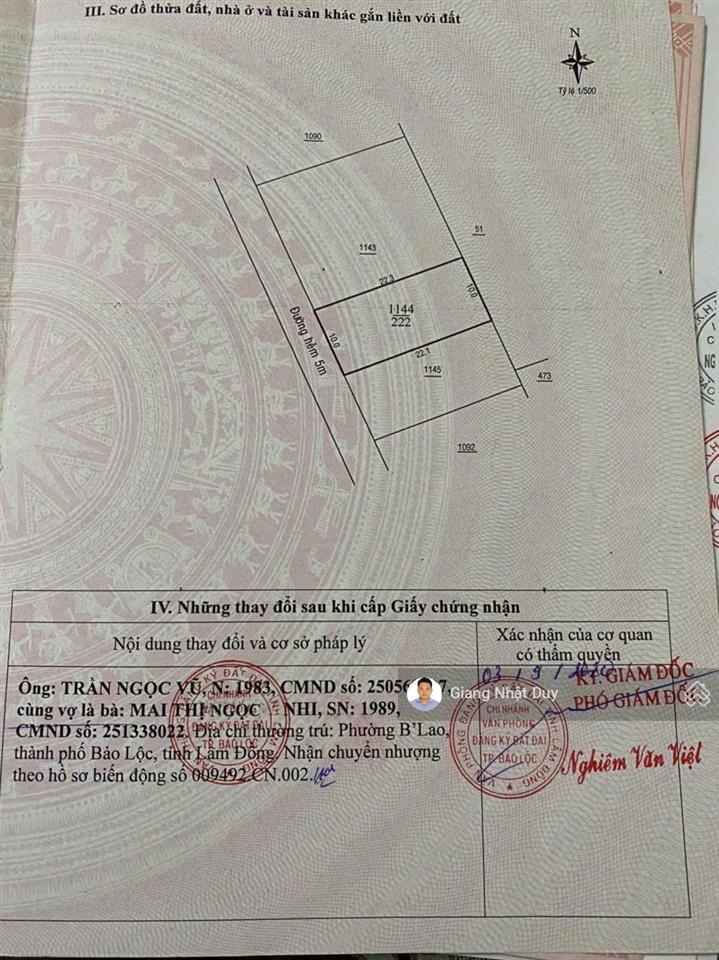 III. Sơ đồ thửa đất, nhà ở và tài sản khác gắn liền với đất
N
Tỷ lệ 1/500
1090
1143
51
22.3
10.0
1144
222
Đường hẻm 5m
10.0
22.1
1145
473
1092
IV. Những thay đổi sau khi cấp Giấy chứng nhận
Nội dung thay đổi và cơ sở pháp lý
Xác nhận của cơ quan
có thẩm quyền
Ông: TRẦN NGỌC VŨ, N: 1983, CMND số: 2505
cùng vợ là bà: MAI THỊ NGỌC NHI, SN: 1989,
CMND số: 251338022, Địa chỉ thường trú: Phường B'Lao,
thành phố Bảo Lộc, tỉnh Lâm Đồng. Nhận chuyển nhượng
theo hồ sơ biến động số 009492.CN.002.
KT. GIÁM ĐỐC
PHÓ GIÁM ĐỐC
Giang Nhật Duy
CHI NHÁNH
VĂN PHÒNG
ĐĂNG KÝ ĐẤT ĐAI
TP. BẢO LỘC
CHI NHÁNH
ĐĂNG KÝ ĐẤT ĐAI
TP. BẢO LỘC
Nghiêm Văn Việt